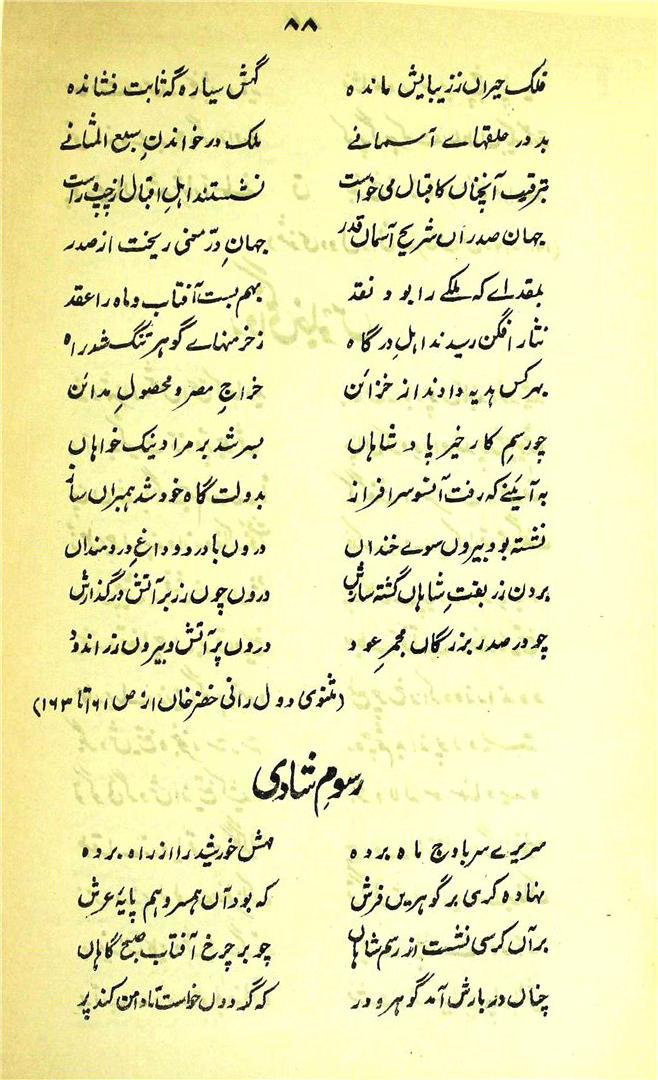 ۸۸
فلک حیراں ز زیبایش مانده گہش سیاره گہ ثابت فشانده
بدور حلقہاے آسمانے ملک در خواندنِ سبع المثانے
بترتیب آنچناں کاقبال می خواست نشستند اہلِ اقبال از چپ و راست
جہان صدراں شریح آسماں قدر جہانِ درّ معنی ریخت از صدر
بمقداے کہ ملکے را بود نقد بہم بست آفتاب و ماه را عقد
نثار افگن رسیدند اہلِ درگاه زخرمنہاے گوہر تنگ شد راه
بہرکس ہدیہ دادند از خزائن خراجِ مصر و محصولِ مدائن
چو رسمِ کار خیر پادشاہاں بسر شد بر مراد نیک خواہاں
بہ آئینے کہ رفت آنسو سرافراز بدولت گاه خود شد ہمبراں ساز
نشستہ بود بیروں سوے خنداں دروں با درد و داغِ دردمنداں
بروں زربفتِ شاہاں گشتہ سازش دروں چوں زر بر آتش در گدازش
چو در صدر بزرگاں مجمرِ عود دروں پر آتش و بیروں زر اندود
(مثنوی دول رانی خضر خاں از ص ۱۶۱ تا ۱۶۳)
رسومِ شادی
سریرے سر باوج ماه برده مہش خورشید را از راه برده
نہاده کرسی بر گوہریں فرش کہ بود آں ہمسر و ہم پایۂ عرش
برآں کرسی نشست از رسم شاہاں چو بر چرخ آفتاب صبح گاہاں
چناں در بارش آمد گوہر و در کہ گردوں خواست تا دامن کند پر